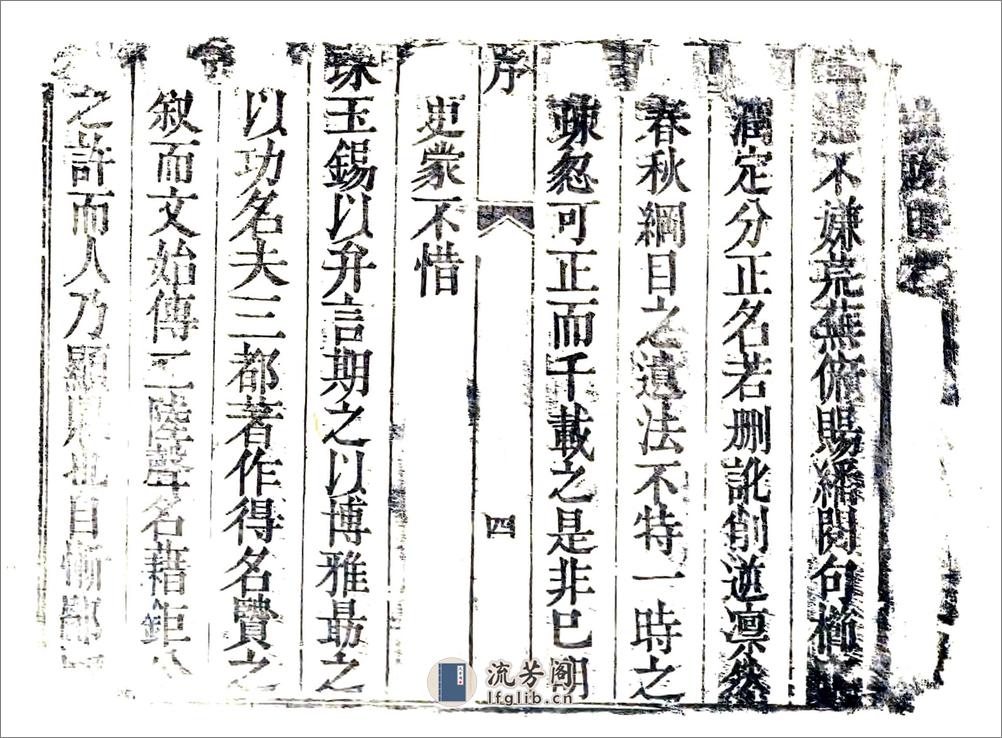 不嫌荒蕪俯賜繙閱句櫛
潤定分正名若删訛削逆凛然
春秋綱目之遺法不特一時之
疎忽可正而千載之是非已明
序
四
更蒙不惜
珠玉錫以弁言期之以博雅勗之
以功名夫三都著作得名賢之
叙而文始傳二陸聲名藉鉅公
之許而人乃顯自慚鄙
流芳阁
lfglib.cn